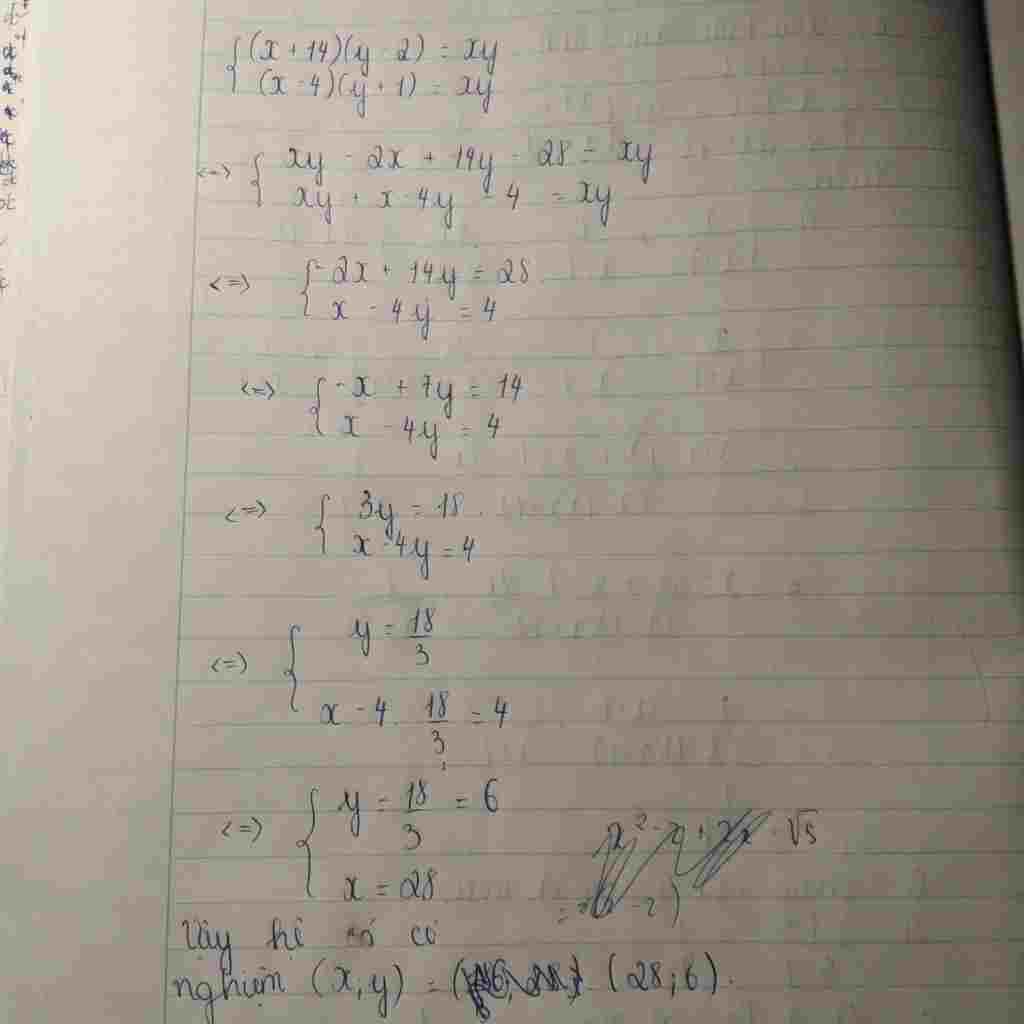 { (x + 14)(y - 2) = xy
(x - 4)(y + 1) = xy
<=> { xy - 2x + 14y - 28 = xy
xy + x - 4y - 4 = xy
<=> { -2x + 14y = 28
x - 4y = 4
<=> { -x + 7y = 14
x - 4y = 4
<=> { 3y = 18
x - 4y = 4
<=> { y = 18/3
x - 4 . 18/3 = 4
<=> { y = 18/3 = 6
x = 28
√5
Vậy hệ có
nghiệm (x, y) = (28; 6).